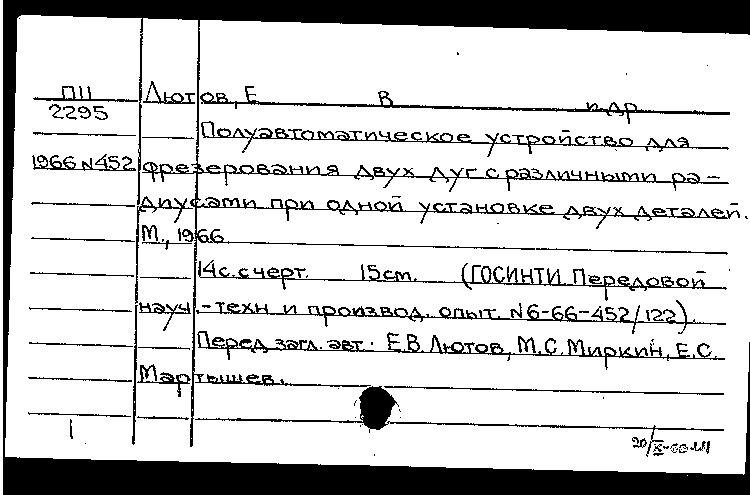 П11 Лютов, Е В и др
2295
Полуавтоматическое устройство для
1966 N452 фрезерования двух дуг с различными ра-
диусами при одной установке двух деталей.
М., 1966
14с. с черт. 15 см. (ГОСИНТИ Передовой
науч.-техн и производ. опыт. N6-66-452/122).
Перед загл. авт.: Е.В. Лютов, М.С. Миркин, Е.С.
Мартышев.
1